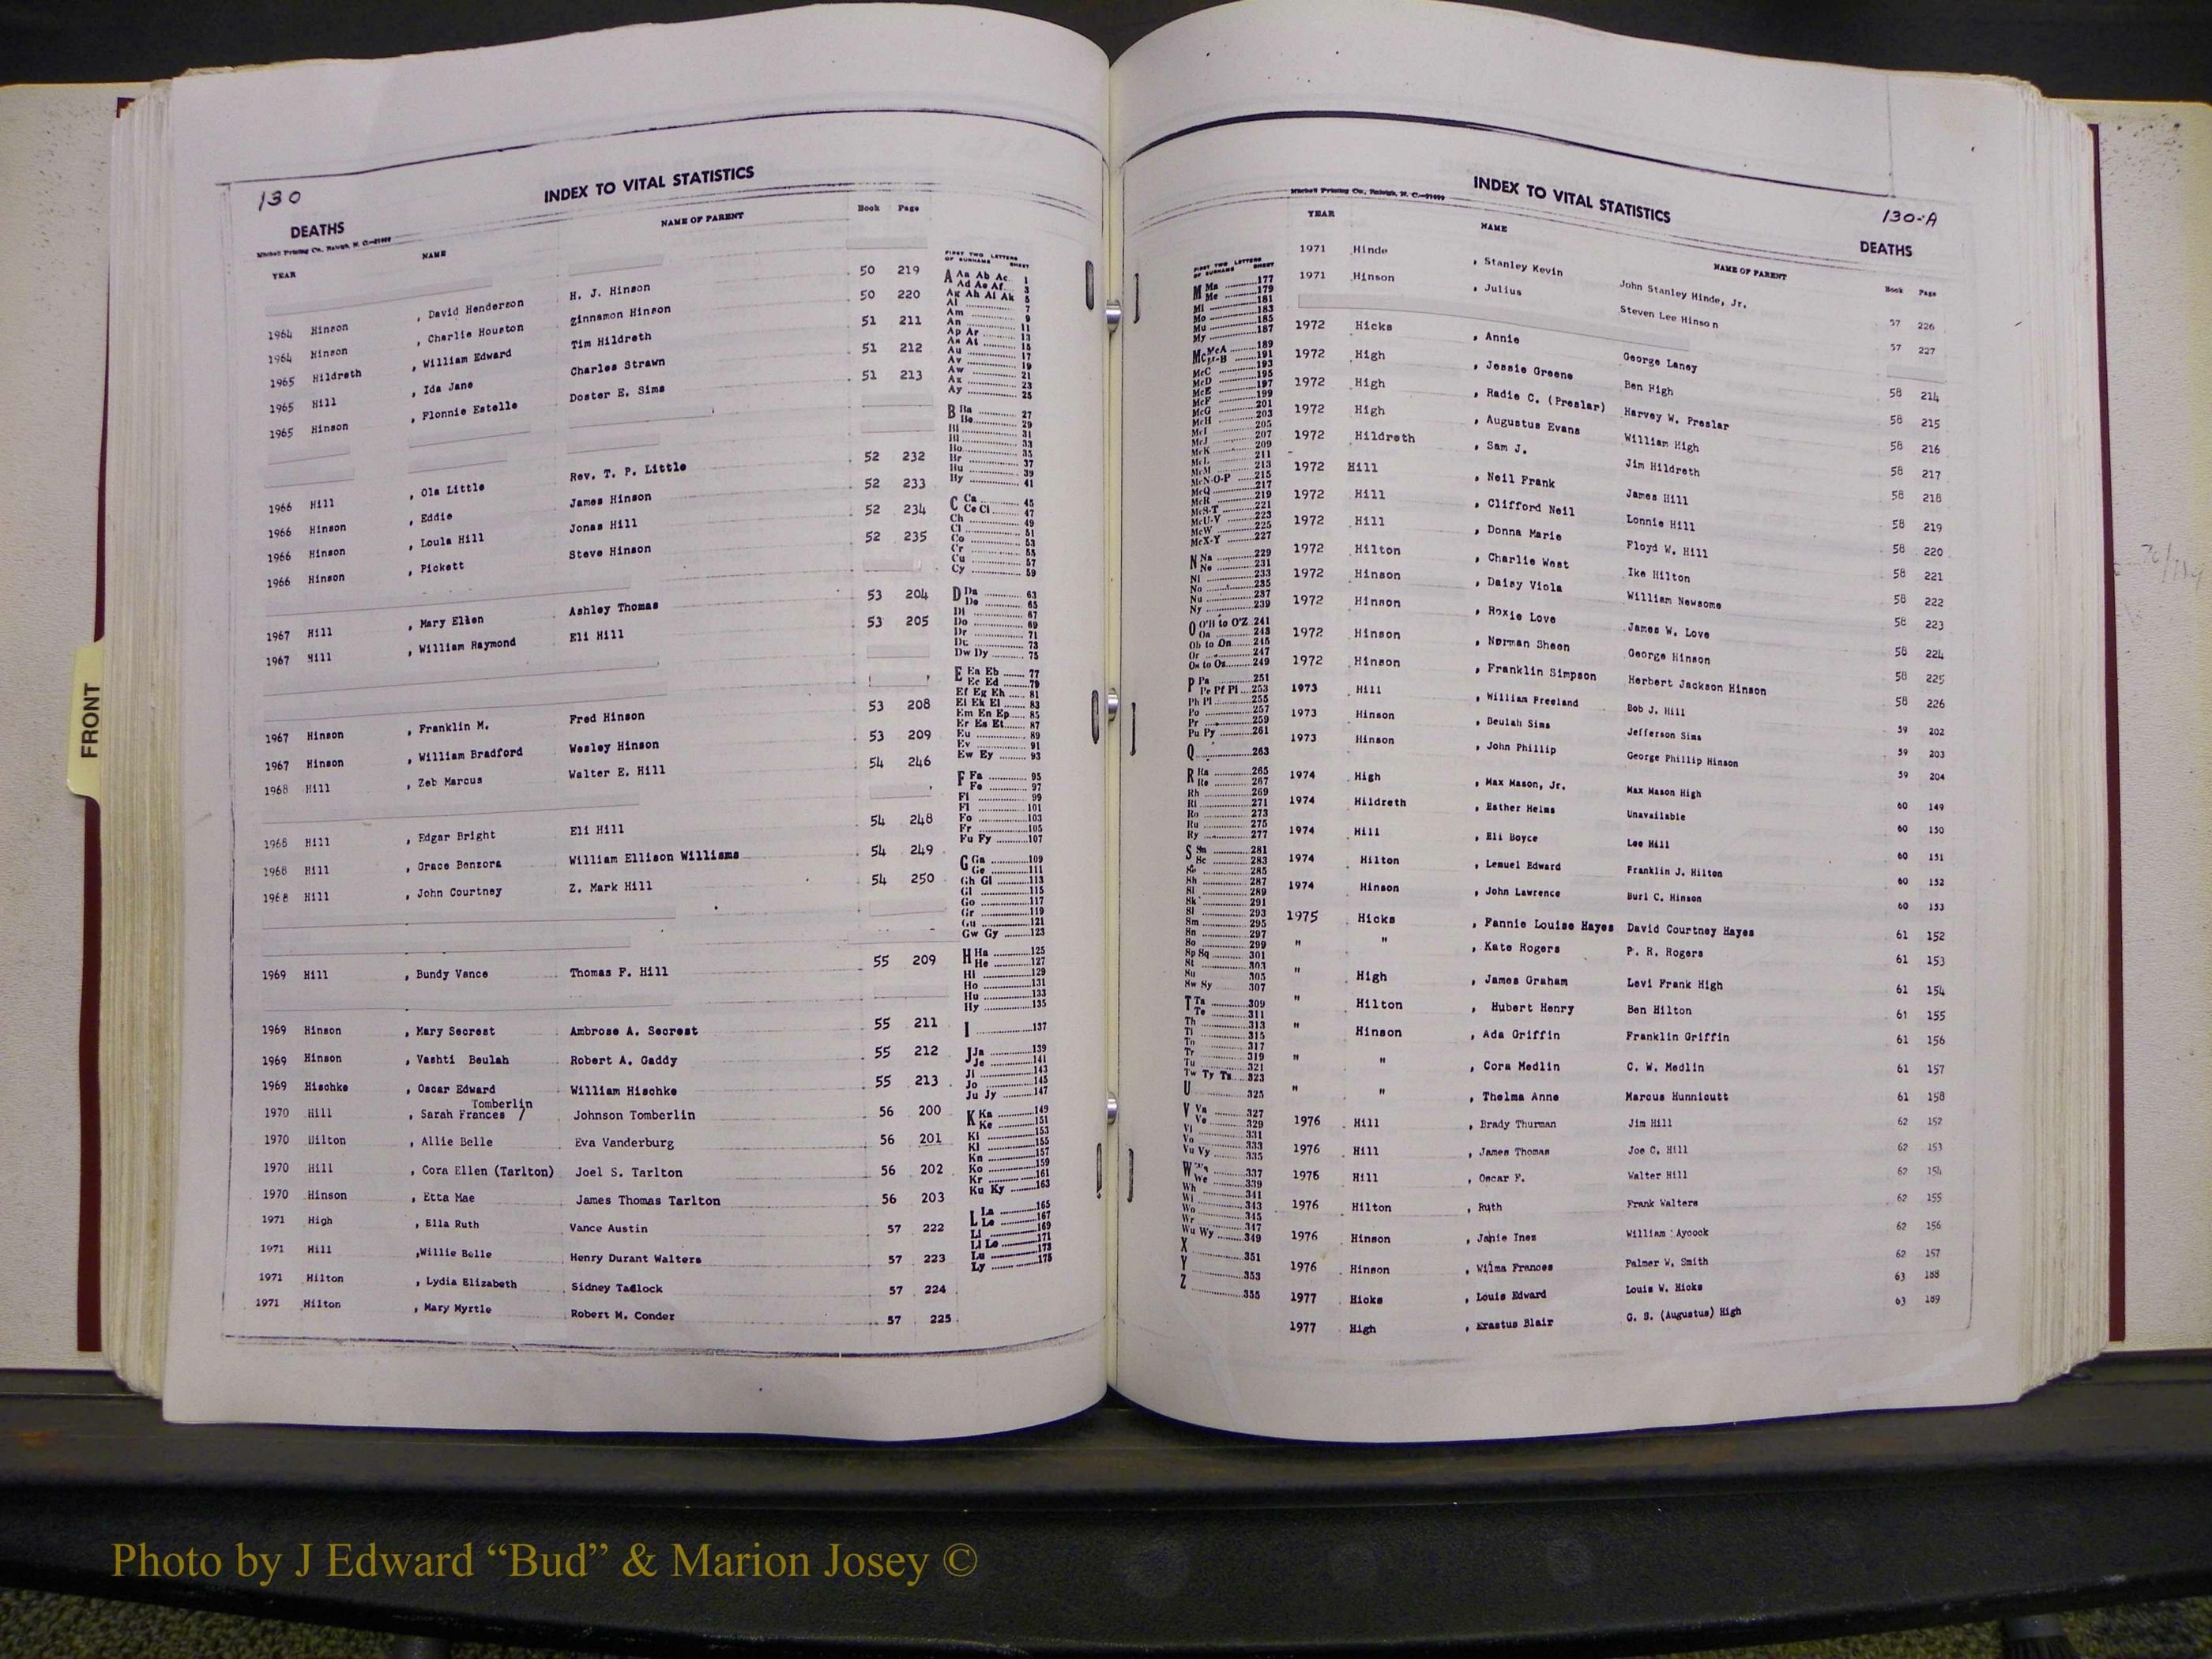 FRONT
130
INDEX TO VITAL STATISTICS
DEATHS
Mitchell Printing Co., Raleigh, N. C.—91499
YEAR NAME NAME OF PARENT Book Page
1964 Hinson , David Henderson H. J. Hinson 50 219
1964 Hinson , Charlie Houston Zinnamon Hinson 50 220
1965 Hildreth , William Edward Tim Hildreth 51 211
1965 Hill , Ida Jane Charles Strawn 51 212
1965 Hinson , Flonnie Estelle Doster E. Sims 51 213
1966 Hill , Ola Little Rev. T. P. Little 52 232
1966 Hinson , Eddie James Hinson 52 233
1966 Hinson , Loula Hill Jonas Hill 52 234
1966 Hinson , Pickett Steve Hinson 52 235
1967 Hill , Mary Ellen Ashley Thomas 53 204
1967 Hill , William Raymond Eli Hill 53 205
1967 Hinson , Franklin M. Fred Hinson 53 208
1967 Hinson , William Bradford Wesley Hinson 53 209
1968 Hill , Zeb Marcus Walter E. Hill 54 246
1968 Hill , Edgar Bright Eli Hill 54 248
1968 Hill , Grace Benzora William Ellison Williams 54 249
1968 Hill , John Courtney Z. Mark Hill 54 250
1969 Hill , Bundy Vance Thomas F. Hill 55 209
1969 Hinson , Mary Secrest Ambrose A. Secrest 55 211
1969 Hinson , Vashti Beulah Robert A. Gaddy 55 212
1969 Hischke , Oscar Edward William Hischke 55 213
Tomberlin
1970 Hill , Sarah Frances / Johnson Tomberlin 56 200
1970 Hilton , Allie Belle Eva Vanderburg 56 201
1970 Hill , Cora Ellen (Tarlton) Joel S. Tarlton 56 202
1970 Hinson , Etta Mae James Thomas Tarlton 56 203
1971 High , Ella Ruth Vance Austin 57 222
1971 Hill ,Willie Belle Henry Durant Walters 57 223
1971 Hilton , Lydia Elizabeth Sidney Tadlock 57 224
1971 Hilton , Mary Myrtle Robert M. Conder 57 225
FIRST TWO LETTERS
OF SURNAME SHEET
A Aa Ab Ac 1
Ad Ae Af 3
Ag Ah Ai Ak 5
Al 7
Am 9
An 11
Ap Ar 13
As At 15
Au 17
Av 19
Aw 21
Ax 23
Ay 25
B Ba 27
Be 29
Bi 31
Bl 33
Bo 35
Br 37
Bu 39
By 41
C Ca 45
Ce Ci 47
Ch 49
Cl 51
Co 53
Cr 55
Cu 57
Cy 59
D Da 63
De 65
Di 67
Do 69
Dr 71
Du 73
Dw Dy 75
E Ea Eb 77
Ec Ed 79
Ef Eg Eh 81
Ei Ek El 83
Em En Ep 85
Er Es Et 87
Eu 89
Ev 91
Ew Ey 93
F Fa 95
Fe 97
Fi 99
Fl 101
Fo 103
Fr 105
Fu Fy 107
G Ga 109
Ge 111
Gh Gi 113
Gl 115
Go 117
Gr 119
Gu 121
Gw Gy 123
H Ha 125
He 127
Hi 129
Ho 131
Hu 133
Hy 135
I 137
J Ja 139
Je 141
Ji 143
Jo 145
Ju Jy 147
K Ka 149
Ke 151
Ki 153
Kl 155
Kn 157
Ko 159
Kr 161
Ku Ky 163
L La 165
Le 167
Li 169
Ll Lo 171
Lu 173
Ly 175
INDEX TO VITAL STATISTICS
130-A
Mitchell Printing Co., Raleigh, N. C.—91499
DEATHS
YEAR NAME NAME OF PARENT Book Page
1971 Hinde , Stanley Kevin John Stanley Hinde, Jr. 57 226
1971 Hinson , Julius Steven Lee Hinson 57 227
1972 Hicks , Annie George Laney 58 214
1972 High , Jessie Greene Ben High 58 215
1972 High , Radie C. (Preslar) Harvey W. Preslar 58 216
1972 High , Augustus Evans William High 58 217
1972 Hildreth , Sam J. Jim Hildreth 58 218
1972 Hill , Neil Frank James Hill 58 219
1972 Hill , Clifford Neil Lonnie Hill 58 220
1972 Hill , Donna Marie Floyd W. Hill 58 221
1972 Hilton , Charlie West Ike Hilton 58 222
1972 Hinson , Daisy Viola William Newsome 58 223
1972 Hinson , Roxie Love James W. Love 58 224
1972 Hinson , Norman Sheen George Hinson 58 225
1972 Hinson , Franklin Simpson Herbert Jackson Hinson 58 226
1973 Hill , William Freeland Bob J. Hill 59 202
1973 Hinson , Beulah Sims Jefferson Sims 59 203
1973 Hinson , John Phillip George Phillip Hinson 59 204
1974 High , Max Mason, Jr. Max Mason High 60 149
1974 Hildreth , Esther Helms Unavailable 60 150
1974 Hill , Eli Boyce Lee Hill 60 151
1974 Hilton , Lemuel Edward Franklin J. Hilton 60 152
1974 Hinson , John Lawrence Burl C. Hinson 60 153
1975 Hicks , Fannie Louise Hayes David Courtney Hayes 61 152
" " , Kate Rogers P. R. Rogers 61 153
" High , James Graham Levi Frank High 61 154
" Hilton , Hubert Henry Ben Hilton 61 155
" Hinson , Ada Griffin Franklin Griffin 61 156
" " , Cora Medlin C. W. Medlin 61 157
" " , Thelma Anne Marcus Hunnicutt 61 158
1976 Hill , Brady Thurman Jim Hill 62 152
1976 Hill , James Thomas Joe C. Hill 62 153
1976 Hill , Oscar F. Walter Hill 62 154
1976 Hilton , Ruth Frank Walters 62 155
1976 Hinson , Janie Inez William Aycock 62 156
1976 Hinson , Wilma Frances Palmer W. Smith 62 157
1977 Hicks , Louis Edward Louis W. Hicks 63 188
1977 High , Erastus Blair G. S. (Augustus) High 63 189
FIRST TWO LETTERS
OF SURNAME SHEET
M Ma 177
Me 179
Mi 181
Mo 183
Mu 185
My 187
Mc McA 189
McB 191
McC 193
McD 195
McE 197
McF 199
McG 201
McH 203
McI 205
McJ 207
McK 209
McL 211
McM 213
McN-O-P 215
McQ 217
McR 219
McS-T 221
McU-V 223
McW 225
McX-Y 227
N Na 229
Ne 231
Ni 233
No 235
Nu 237
Ny 239
O O'B to O'Z 241
Oa 243
Ob to On 245
Or 247
Os to Oz 249
P Pa 251
Pe Pf Pi 253
Ph Pl 255
Po 257
Pr 259
Pu Py 261
Q 263
R Ra 265
Re 267
Rh 269
Ri 271
Ro 273
Ru 275
Ry 277
S Sa 281
Sc 283
Se 285
Sh 287
Si 289
Sk 291
Sl 293
Sm 295
Sn 297
So 299
Sp Sq 301
St 303
Su 305
Sw Sy 307
T Ta 309
Te 311
Th 313
Ti 315
To 317
Tr 319
Tu 321
Tw Ty Ts 323
U 325
V Va 327
Ve 329
Vi 331
Vo 333
Vu Vy 335
W Wa 337
We 339
Wh 341
Wi 343
Wo 345
Wr 347
Wu Wy 349
X 351
Y 353
Z 355
Photo by J Edward “Bud” & Marion Josey ©